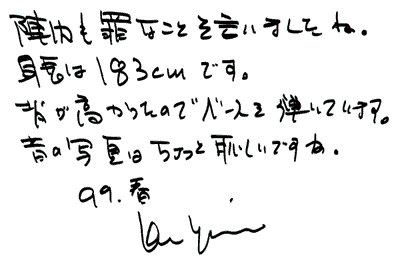 陣内も罪なことを言いましたね。
身長は183cmです。
背が高かったのでベースを弾いています。
昔の写真はちょっと恥しいですね。
99.春